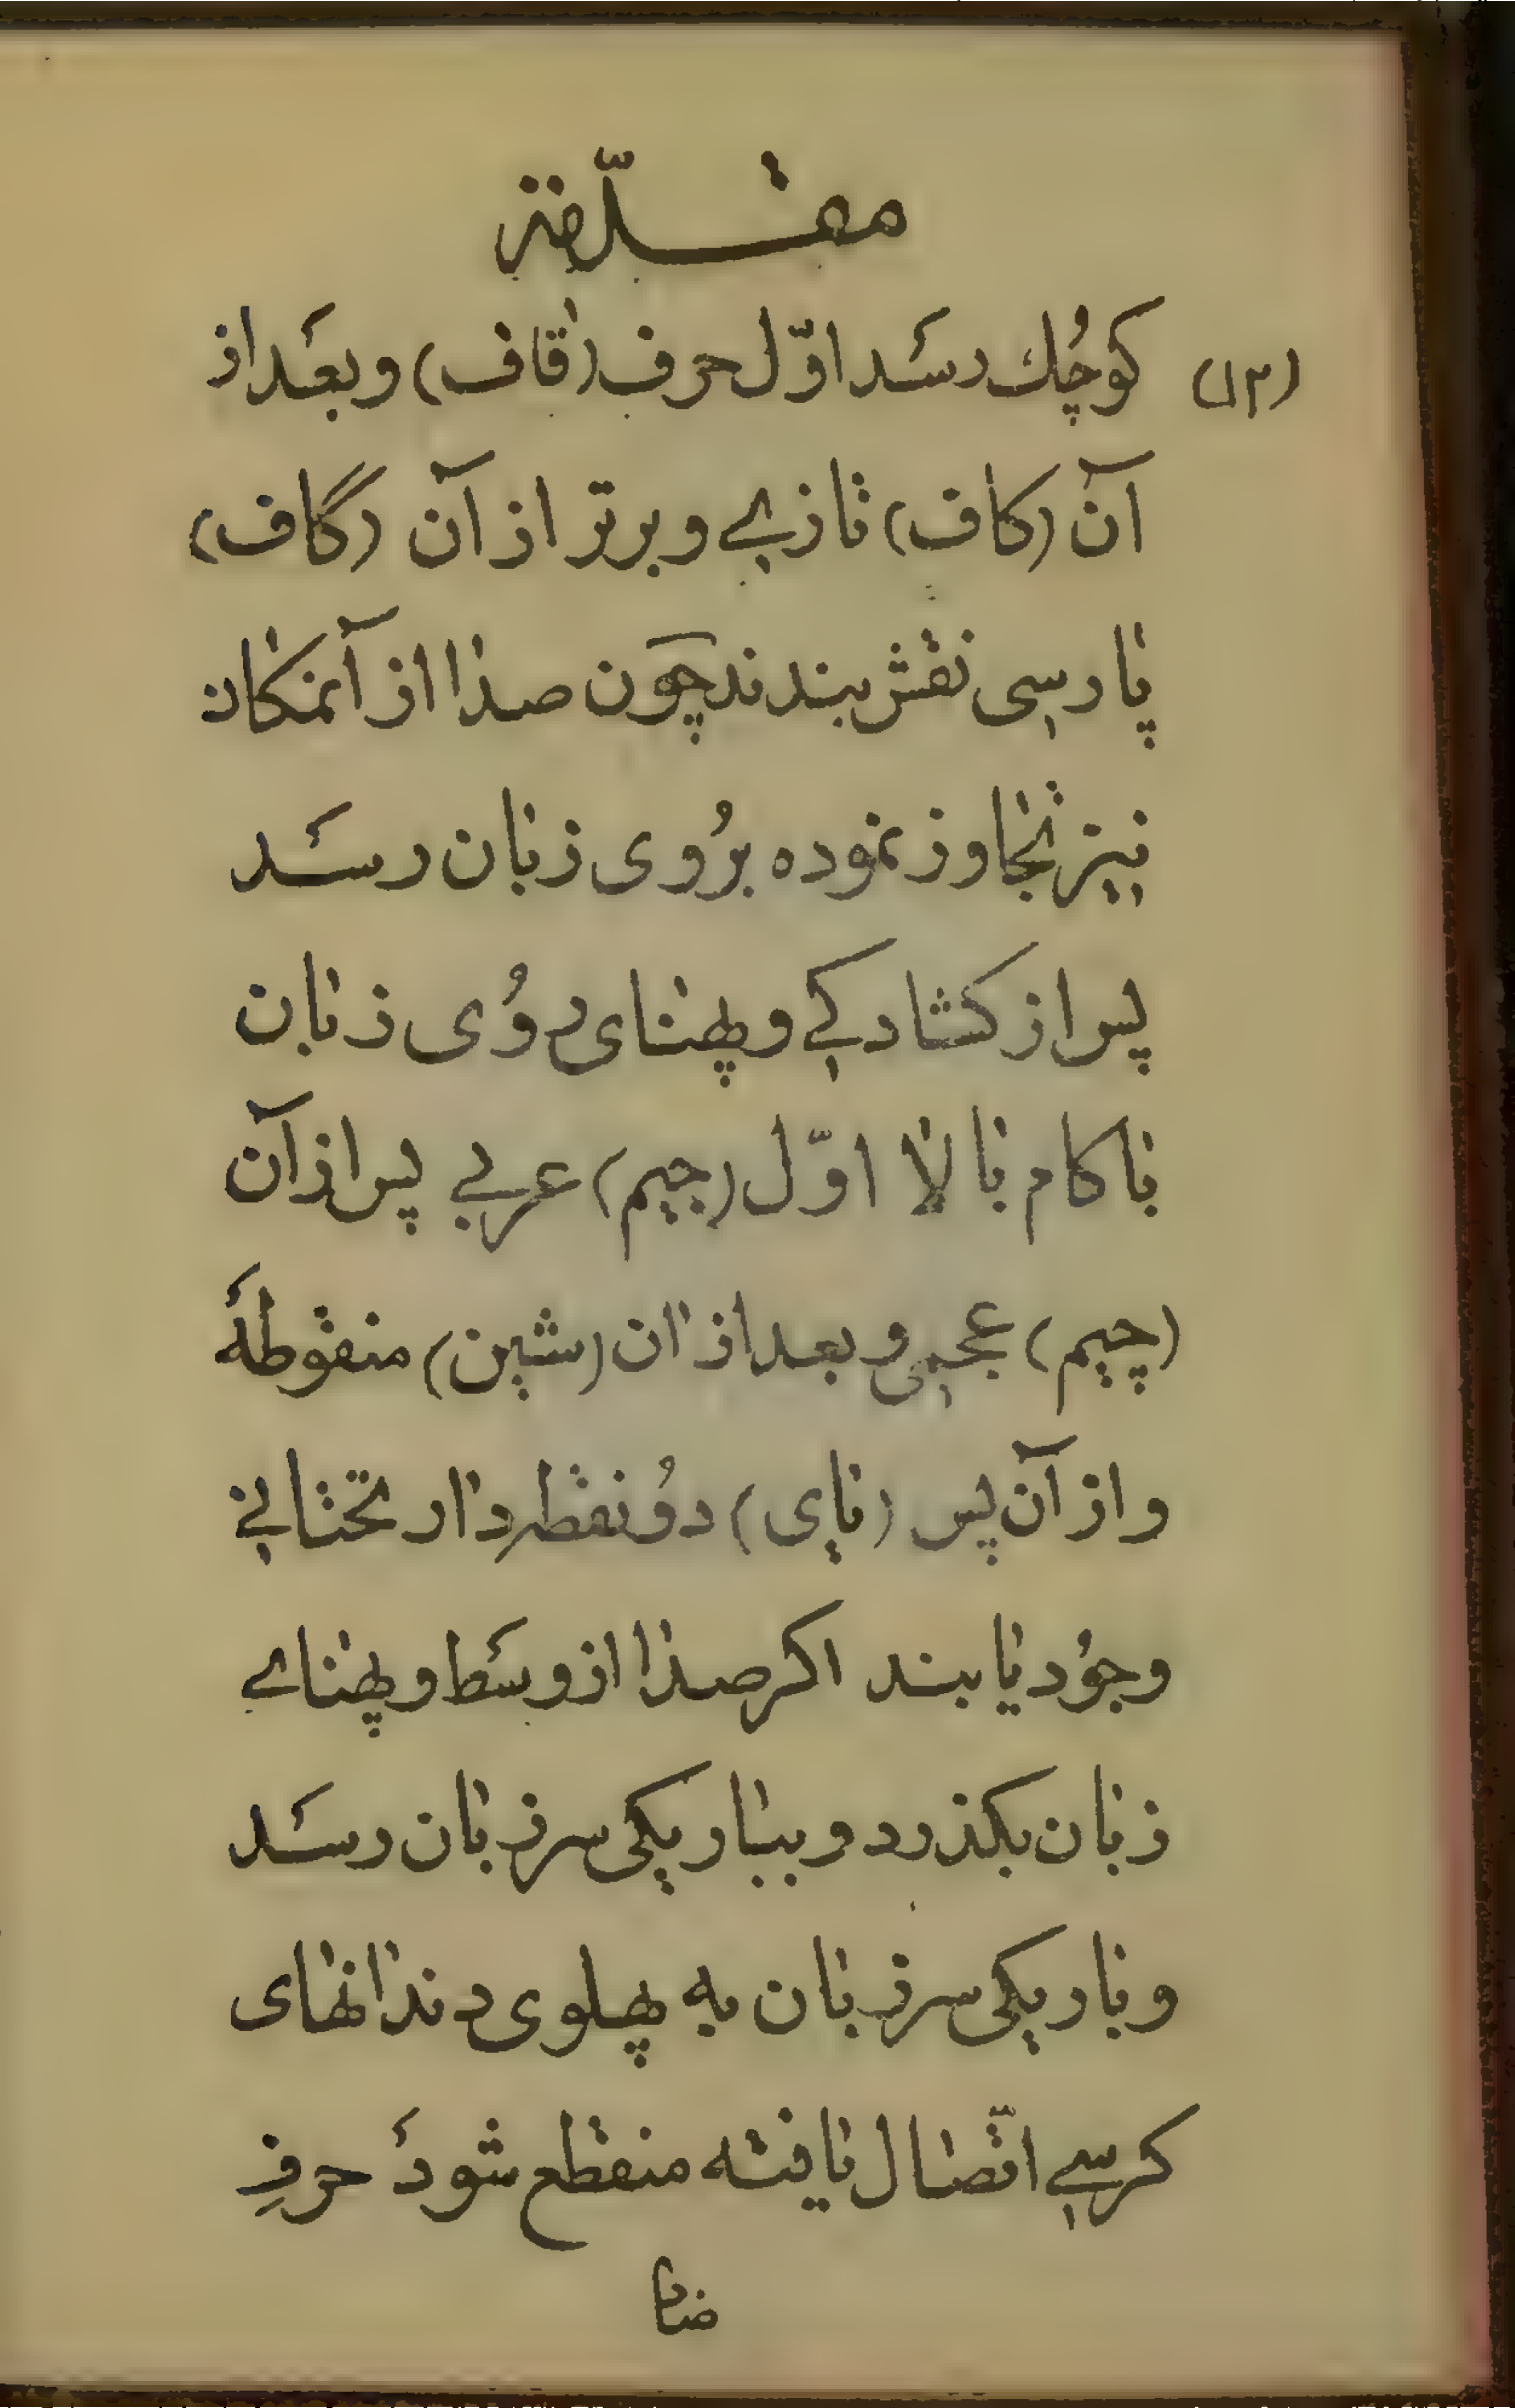 مقدّمه
(۱۳) کوچُك رسَد اوّل حرف (قاف) و بعَد از
آن (کاف) تازی و برتر از آن (گاف)
پارسی نقش بندند چون صدا از آنمکان
نیز تجاوز نموده برُوی زبان رسَد
پس از کشادکی و پهنای رُوی زبان
با کام بالا اوّل (جیم) عربی پس از آن
(چیم) عجمی و بعد از ان (شین) منقوطهٔ
و از آن پس (یای) دُو نقطه دار تحتانی
وجُود یابند اکر صدا از وسَط و پهنای
زبان بکذرد و بباریکی سر زبان رسَد
و باریکی سر زبان به پهلوی دندانهای
کرسی اتّصال یافته منقطع شودَ حرفِ
ضاد